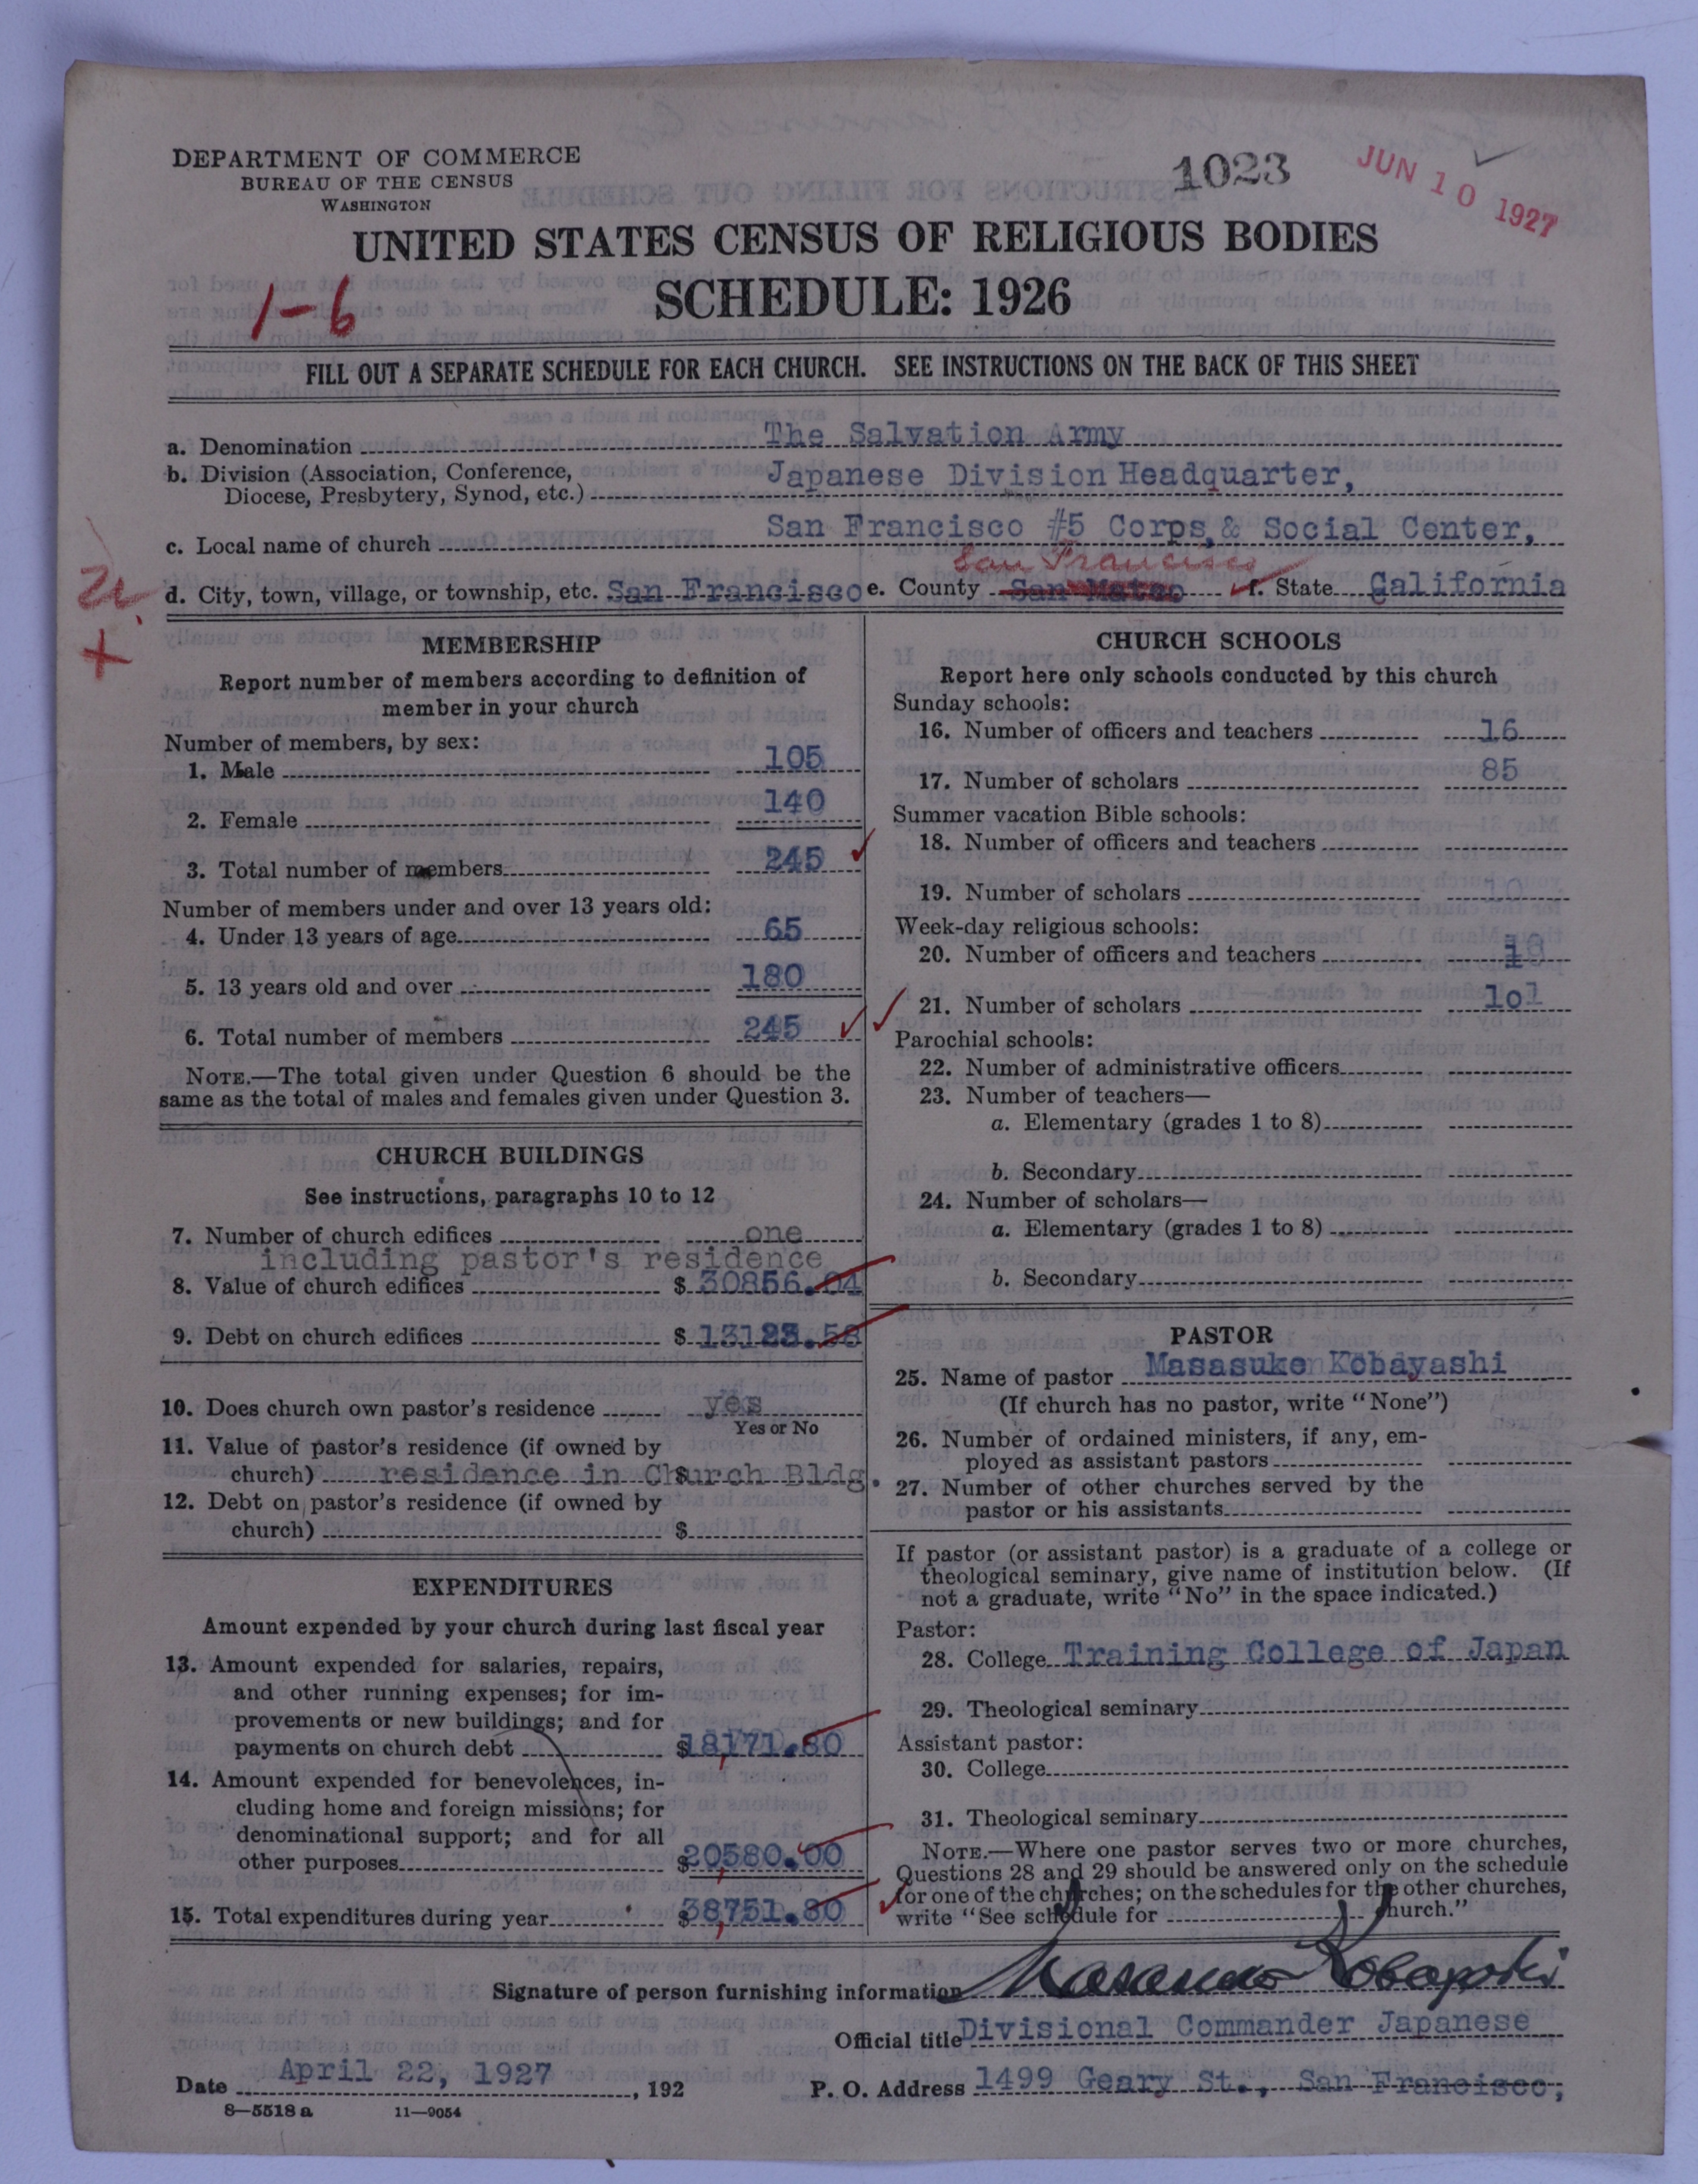 DEPARTMENT OF COMMERCE
BUREAU OF THE CENSUS
WASHINGTON
1023
JUN 10 1927
UNITED STATES CENSUS OF RELIGIOUS BODIES
SCHEDULE: 1926
1-6
FILL OUT A SEPARATE SCHEDULE FOR EACH CHURCH. SEE INSTRUCTIONS ON THE BACK OF THIS SHEET
a. Denomination The Salvation Army
b. Division (Association, Conference, Diocese, Presbytery, Synod, etc.) Japanese Division Headquarter,
c. Local name of church San Francisco #5 Corps, & Social Center,
San Francisco
d. City, town, village, or township, etc. San Francisco e. County San Mateo f. State California
MEMBERSHIP
Report number of members according to definition of
member in your church
Number of members, by sex:
1. Male 105
2. Female 140
3. Total number of members 245
Number of members under and over 13 years old:
4. Under 13 years of age 65
5. 13 years old and over 180
6. Total number of members 245
NOTE.—The total given under Question 6 should be the
same as the total of males and females given under Question 3.
CHURCH BUILDINGS
See instructions, paragraphs 10 to 12
7. Number of church edifices one
including pastor's residence
8. Value of church edifices $ 30856.04
9. Debt on church edifices $
10. Does church own pastor's residence yes
Yes or No
11. Value of pastor's residence (if owned by
church) residence in Church Bldg. $
12. Debt on pastor's residence (if owned by
church) $
EXPENDITURES
Amount expended by your church during last fiscal year
13. Amount expended for salaries, repairs,
and other running expenses; for im-
provements or new buildings; and for
payments on church debt $18,171.80
14. Amount expended for benevolences, in-
cluding home and foreign missions; for
denominational support; and for all
other purposes $20,580.00
15. Total expenditures during year $38,751.80
CHURCH SCHOOLS
Report here only schools conducted by this church
Sunday schools:
16. Number of officers and teachers 16
17. Number of scholars 85
Summer vacation Bible schools:
18. Number of officers and teachers
19. Number of scholars 10
Week-day religious schools:
20. Number of officers and teachers
21. Number of scholars 101
Parochial schools:
22. Number of administrative officers
23. Number of teachers—
a. Elementary (grades 1 to 8)
b. Secondary
24. Number of scholars—
a. Elementary (grades 1 to 8)
b. Secondary
PASTOR
25. Name of pastor Masasuke Kobayashi
(If church has no pastor, write "None")
26. Number of ordained ministers, if any, em-
ployed as assistant pastors
27. Number of other churches served by the
pastor or his assistants
If pastor (or assistant pastor) is a graduate of a college or
theological seminary, give name of institution below. (If
not a graduate, write "No" in the space indicated.)
Pastor:
28. College Training College of Japan
29. Theological seminary
Assistant pastor:
30. College
31. Theological seminary
NOTE.—Where one pastor serves two or more churches,
Questions 28 and 29 should be answered only on the schedule
for one of the churches; on the schedules for the other churches,
write "See schedule for church."
Signature of person furnishing information Masasuke Kobayashi
Official title Divisional Commander Japanese
Date April 22, 1927, 192
P. O. Address 1499 Geary St., San Francisco,
8—5518 a 11—9054